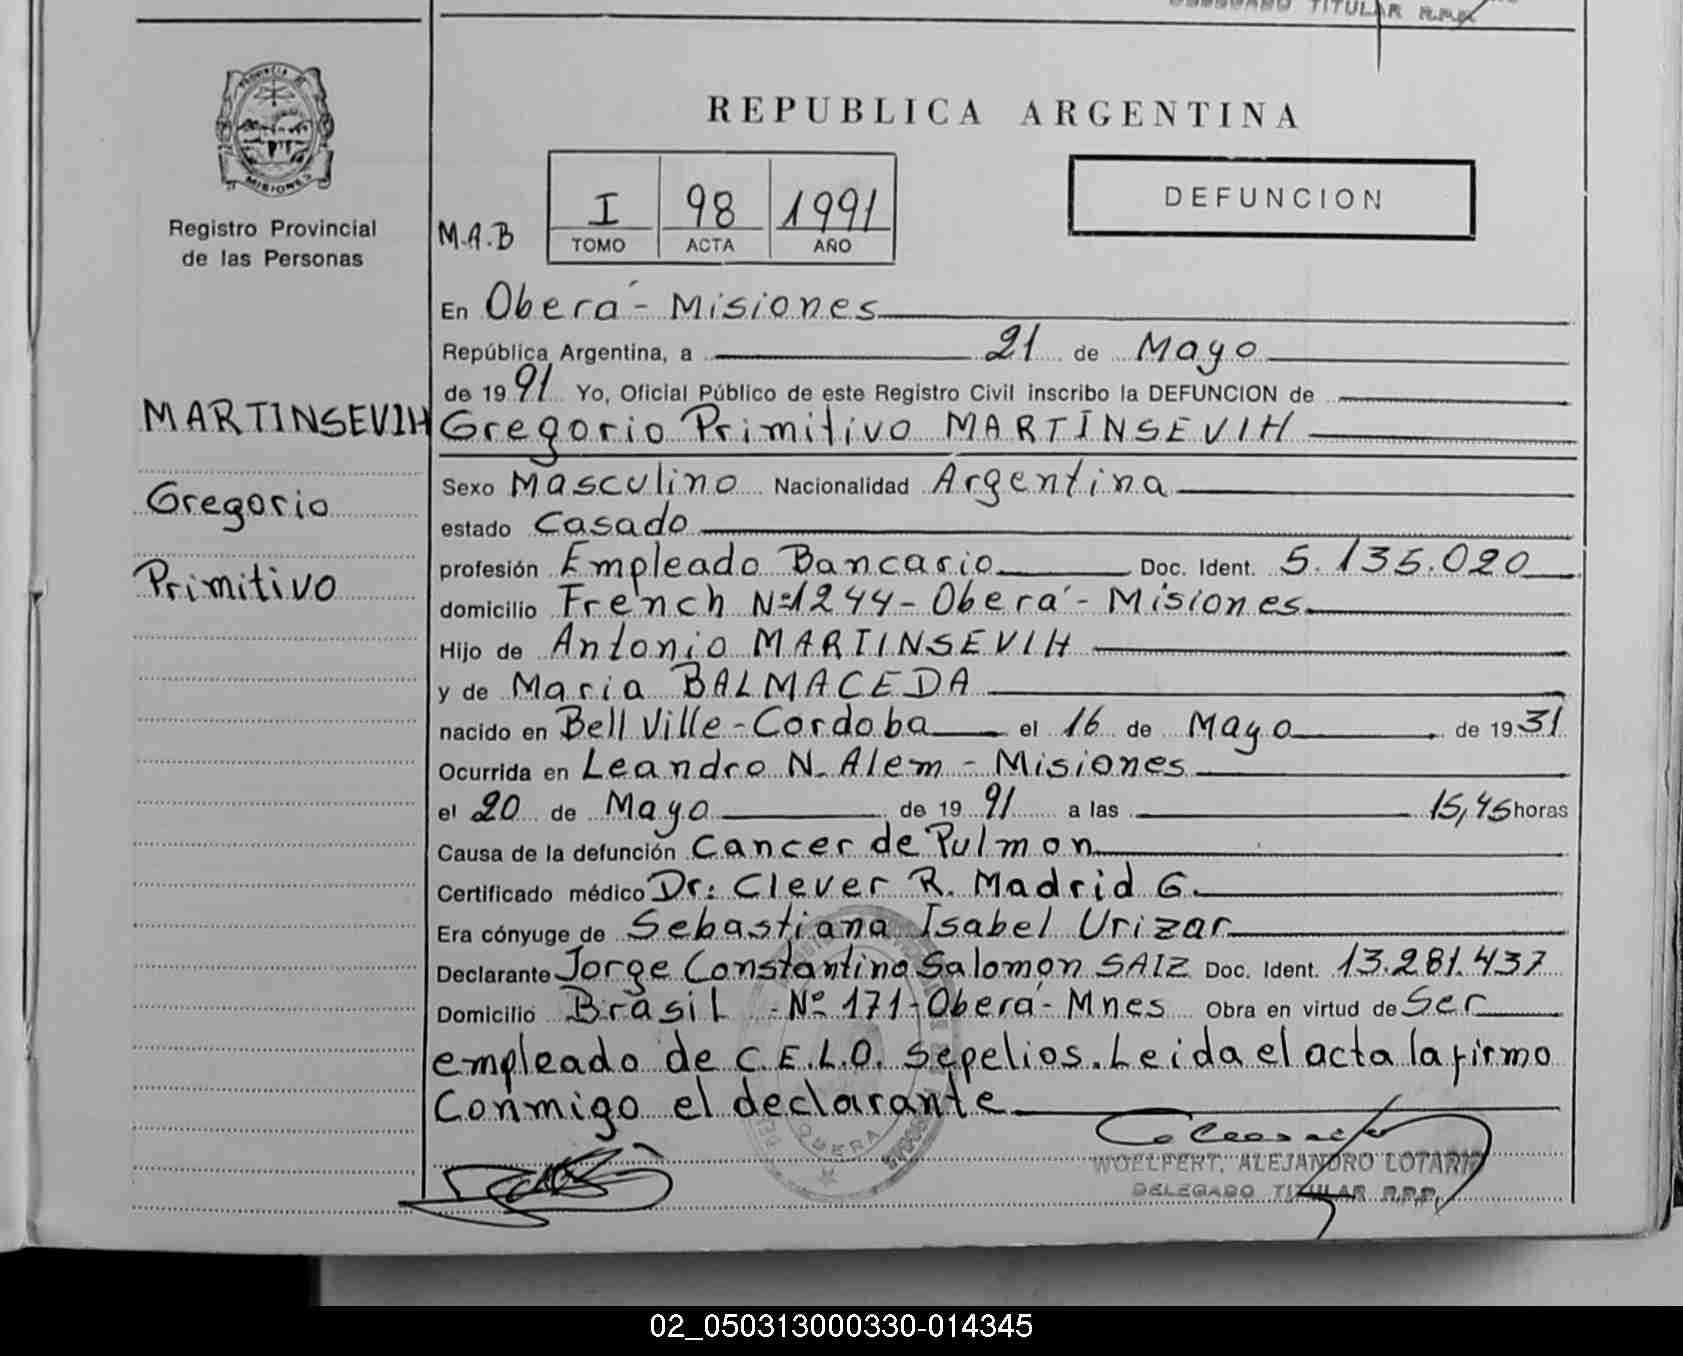 TITULAR R.P.P.
PROVINCIA DE
MISIONES
Registro Provincial
de las Personas
MARTINSEVIH
Gregorio
Primitivo
REPUBLICA ARGENTINA
M.A.B
I 98 1991
TOMO ACTA AÑO
DEFUNCION
En Oberá - Misiones
República Argentina, a 21 de Mayo
de 19 91 Yo, Oficial Público de este Registro Civil inscribo la DEFUNCION de
Gregorio Primitivo MARTINSEVIH
Sexo Masculino Nacionalidad Argentina
estado Casado
profesión Empleado Bancario Doc. Ident. 5.135.020
domicilio French Nº1244 - Oberá - Misiones
Hijo de Antonio MARTINSEVIH
y de Maria BALMACEDA
nacido en Bell Ville - Cordoba el 16 de Mayo de 19 31
Ocurrida en Leandro N. Alem - Misiones
el 20 de Mayo de 19 91 a las 15,45 horas
Causa de la defunción Cancer de Pulmon
Certificado médico Dr: Clever R. Madrid G.
Era cónyuge de Sebastiana Isabel Urizar
Declarante Jorge Constantino Salomon SAIZ Doc. Ident. 13.281.437
Domicilio Brasil Nº 171 - Oberá - Mnes Obra en virtud de Ser
empleado de C.E.L.O. Sepelios. Leida el acta la firmo
Conmigo el declarante
WOELFERT, ALEJANDRO LOTARIO
DELEGADO TITULAR R.P.P.
02_050313000330-014345